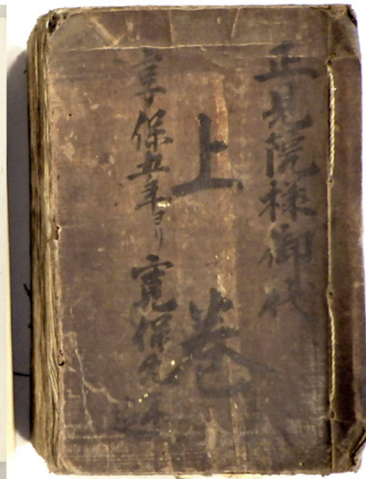 正見院様御代
上巻
享保五年ヨリ寛保元年迄